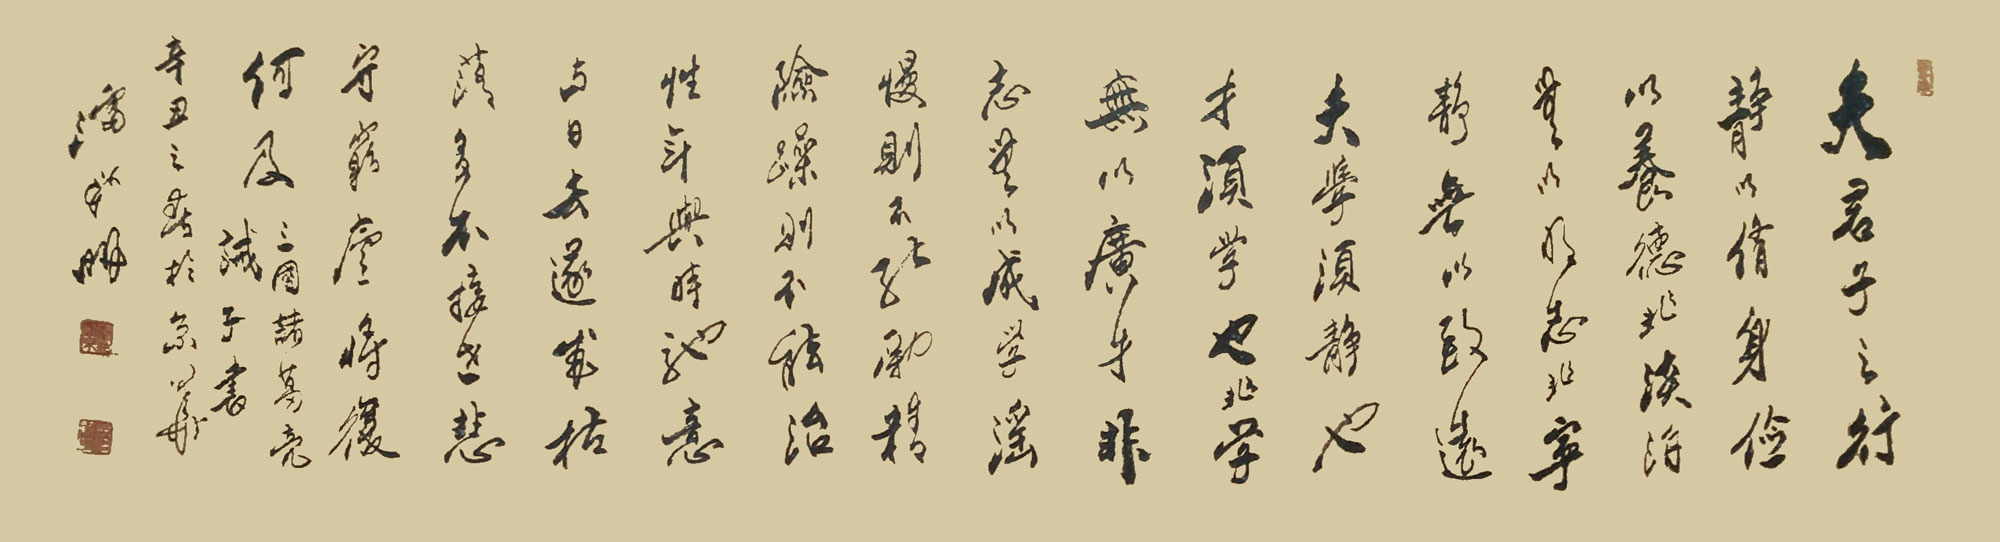 夫君子之行
静以脩身俭
以養德非淡泊
無以明志非寧
静無以致遠
夫學須静也
才須学也非学
無以廣才非
志無以成学滛
慢則不能勵精
險躁則不能治
性年與時馳意
与日去遂成枯
落多不接世悲
守窮廬將復
何及
三國諸葛亮
誡子書
辛丑之春於京華